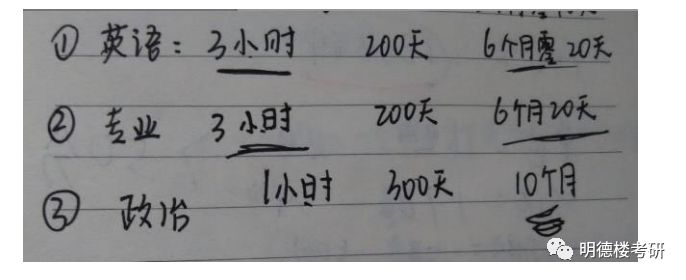 ① 英语： 3小时 200天 6个月零20天
② 专业 3小时 200天 6个月20天
③ 政治 1小时 300天 10个月
明德楼考研